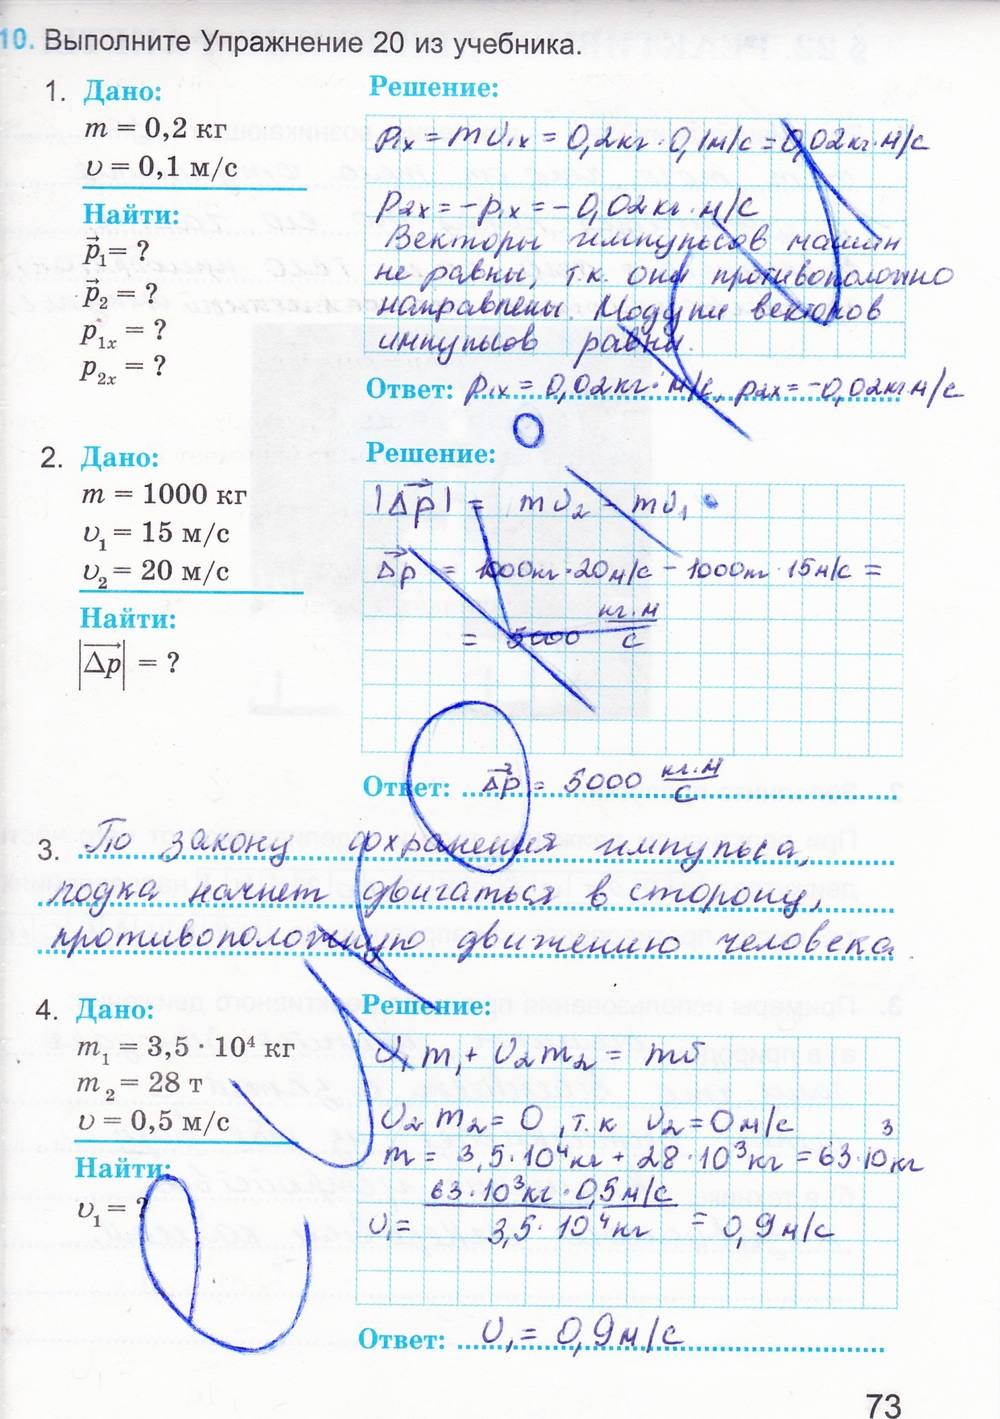 10. Выполните Упражнение 20 из учебника.
1. Дано:
m = 0,2 кг
υ = 0,1 м/с
Найти:
p⃗₁ = ?
p⃗₂ = ?
p₁ₓ = ?
p₂ₓ = ?
Решение:
p₁ₓ = mυ₁ₓ = 0,2кг · 0,1м/с = 0,02кг·м/с
p₂ₓ = -p₁ₓ = -0,02кг·м/с
Векторы импульсов машин
не равны, т.к. они противоположно
направлены Модули векторов
импульсов равны.
Ответ: p₁ₓ = 0,02кг·м/с, p₂ₓ = -0,02кг·м/с
2. Дано:
m = 1000 кг
υ₁ = 15 м/с
υ₂ = 20 м/с
Найти:
|Δp⃗| = ?
Решение:
|Δp⃗| = mυ₂ - mυ₁
Δp⃗ = 1000кг·20м/с - 1000кг·15м/с =
= 5000 кг·м/с
Ответ: Δp⃗ = 5000 кг·м/с
3. По закону сохранения импульса,
лодка начнет двигаться в сторону,
противоположную движению человека
4. Дано:
m₁ = 3,5 · 10⁴ кг
m₂ = 28 т
υ = 0,5 м/с
Найти:
υ₁ = ?
Решение:
υ₁m₁ + υ₂m₂ = mυ
υ₂m₂ = 0, т.к υ₂ = 0м/с
m = 3,5·10⁴кг + 28·10³кг = 63·10³кг
υ₁ = 63·10³кг·0,5м/с / 3,5·10⁴кг = 0,9м/с
Ответ: υ₁ = 0,9м/с
73